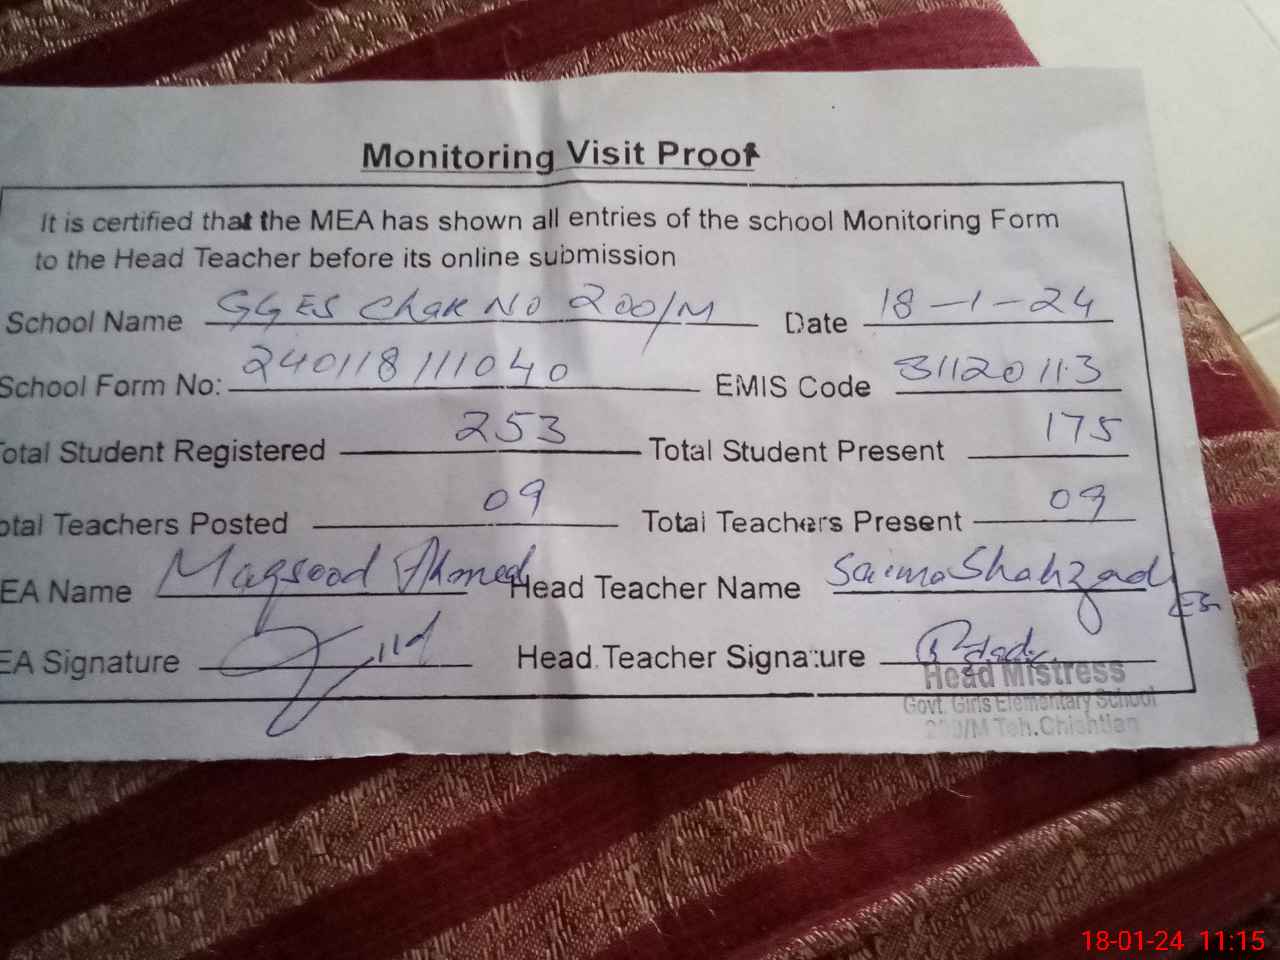 Monitoring Visit Proof
It is certified that the MEA has shown all entries of the school Monitoring Form
to the Head Teacher before its online submission
School Name GGES Chak No 200/M Date 18-1-24
School Form No: 240118111040 EMIS Code 31120113
otal Student Registered 253 Total Student Present 175
otal Teachers Posted 09 Total Teachers Present 09
EA Name Maqsood Ahmed Head Teacher Name Saima Shahzad
EA Signature Head Teacher Signature
Head Mistress
Govt. Girls Elementary School
200/M Teh. Chishtian
18-01-24 11:15